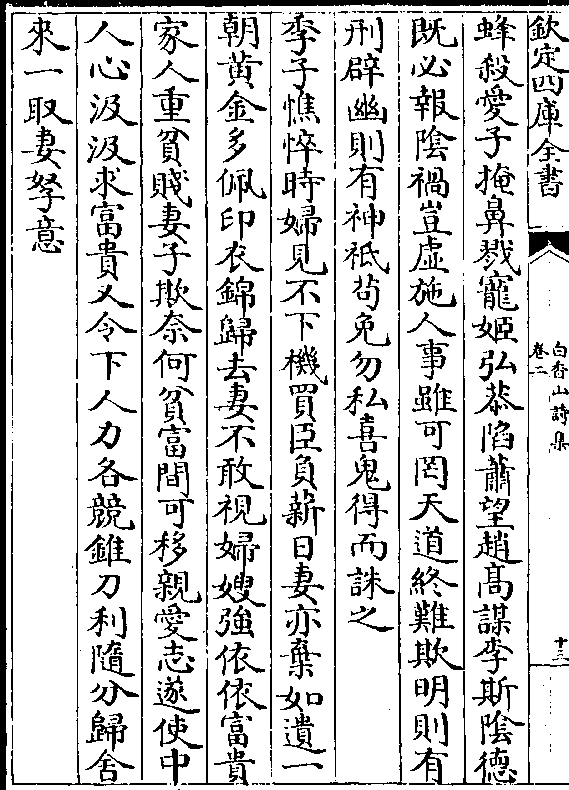 欽定四庫全書
白香山詩集
卷二
十三
蜂殺愛子掩鼻戮寵姬弘恭陷蕭望趙高謀李斯陰德
既必報陰禍豈虛施人事雖可罔天道終難欺明則有
刑辟幽則有神祇茍免勿私喜鬼得而誅之
季子憔悴時婦見不下機買臣負薪日妻亦棄如遺一
朝黃金多佩印衣錦歸去妻不敢視婦嫂強依依富貴
家人重貧賤妻子欺奈何貧富間可移親愛志遂使中
人心汲汲求富貴又令下人力各競錐刀利隨分歸舍
來一取妻孥意